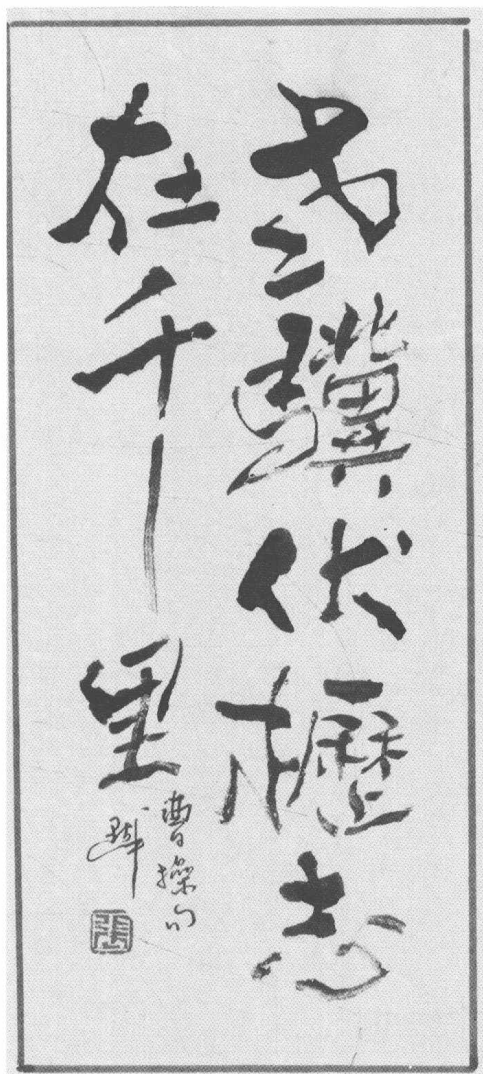 老驥伏櫪志
在千里
曹操句
張